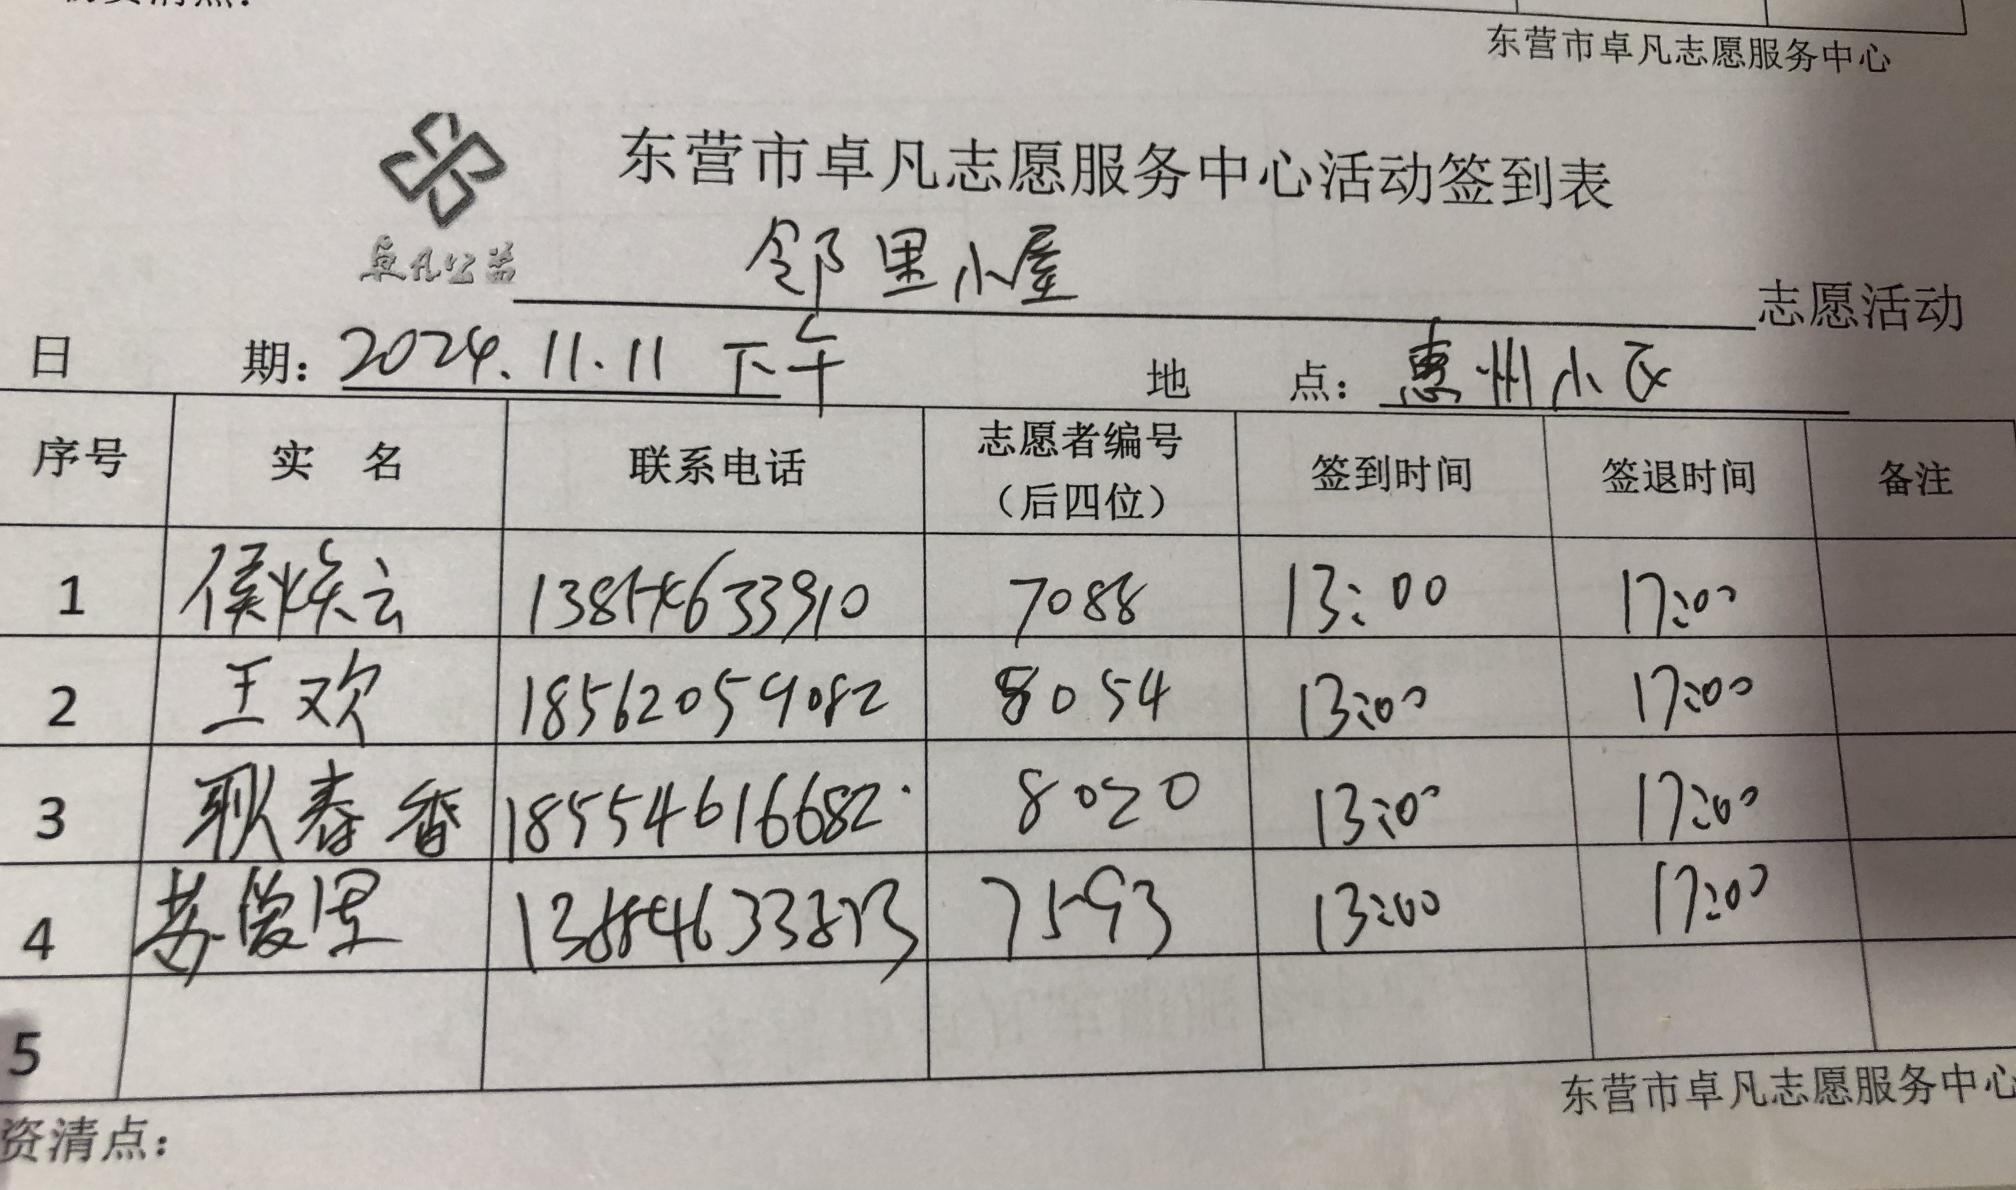 东营市卓凡志愿服务中心
东营市卓凡志愿服务中心活动签到表
卓凡公益
邻里小屋 志愿活动
日 期：2024.11.11 下午 地 点：惠州小区
序号 实 名 联系电话 志愿者编号（后四位） 签到时间 签退时间 备注
1 侯焕云 13854633910 7088 13:00 17:00
2 王欢 18562059082 8054 13:00 17:00
3 耿春香 18554616682 8020 13:00 17:00
4 苏 7593 13:00 17:00
5
东营市卓凡志愿服务中心
资清点：